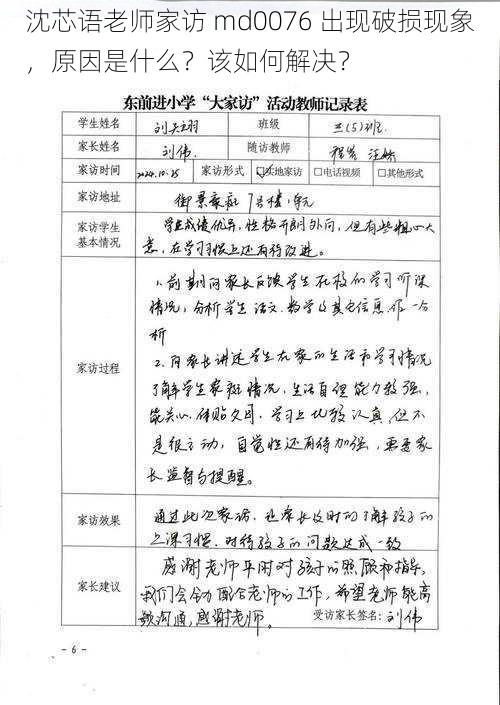 沈芯语老师家访 md0076 出现破损现象
，原因是什么？该如何解决？
东前进小学“大家访”活动教师记录表
学生姓名 刘天翔 班级 三(5)班
家长姓名 刘伟 随访教师 程 汪
家访时间 2024.10.25 家访形式 ☑实地家访 □电话视频 □其他形式
家访地址 御景豪庭 7号楼1单元
家访学生
基本情况
学生成绩优异，性格开朗外向，但有些粗心大
意，在学习习惯上还有待改进。
家访过程
1.前期向家长反馈学生在校的学习听课
情况，分析学生语文、数学及其它信息，作一分
析
2.同家长讲述学生在家的生活和学习情况
了解学生家庭情况，生活自理能力较强，
能关心、体贴父母，学习上比较认真，但不
是很主动，自觉性还有待加强，需要家
长监督与提醒。
家访效果
通过此次家访，让家长及时的了解孩子的
上课习惯，对待孩子的问题达成一致
家长建议
感谢老师平时对孩子的照顾和指导，
我们会全力配合老师的工作，希望老师能高
频沟通，感谢老师。 受访家长签名：刘伟
- 6 -